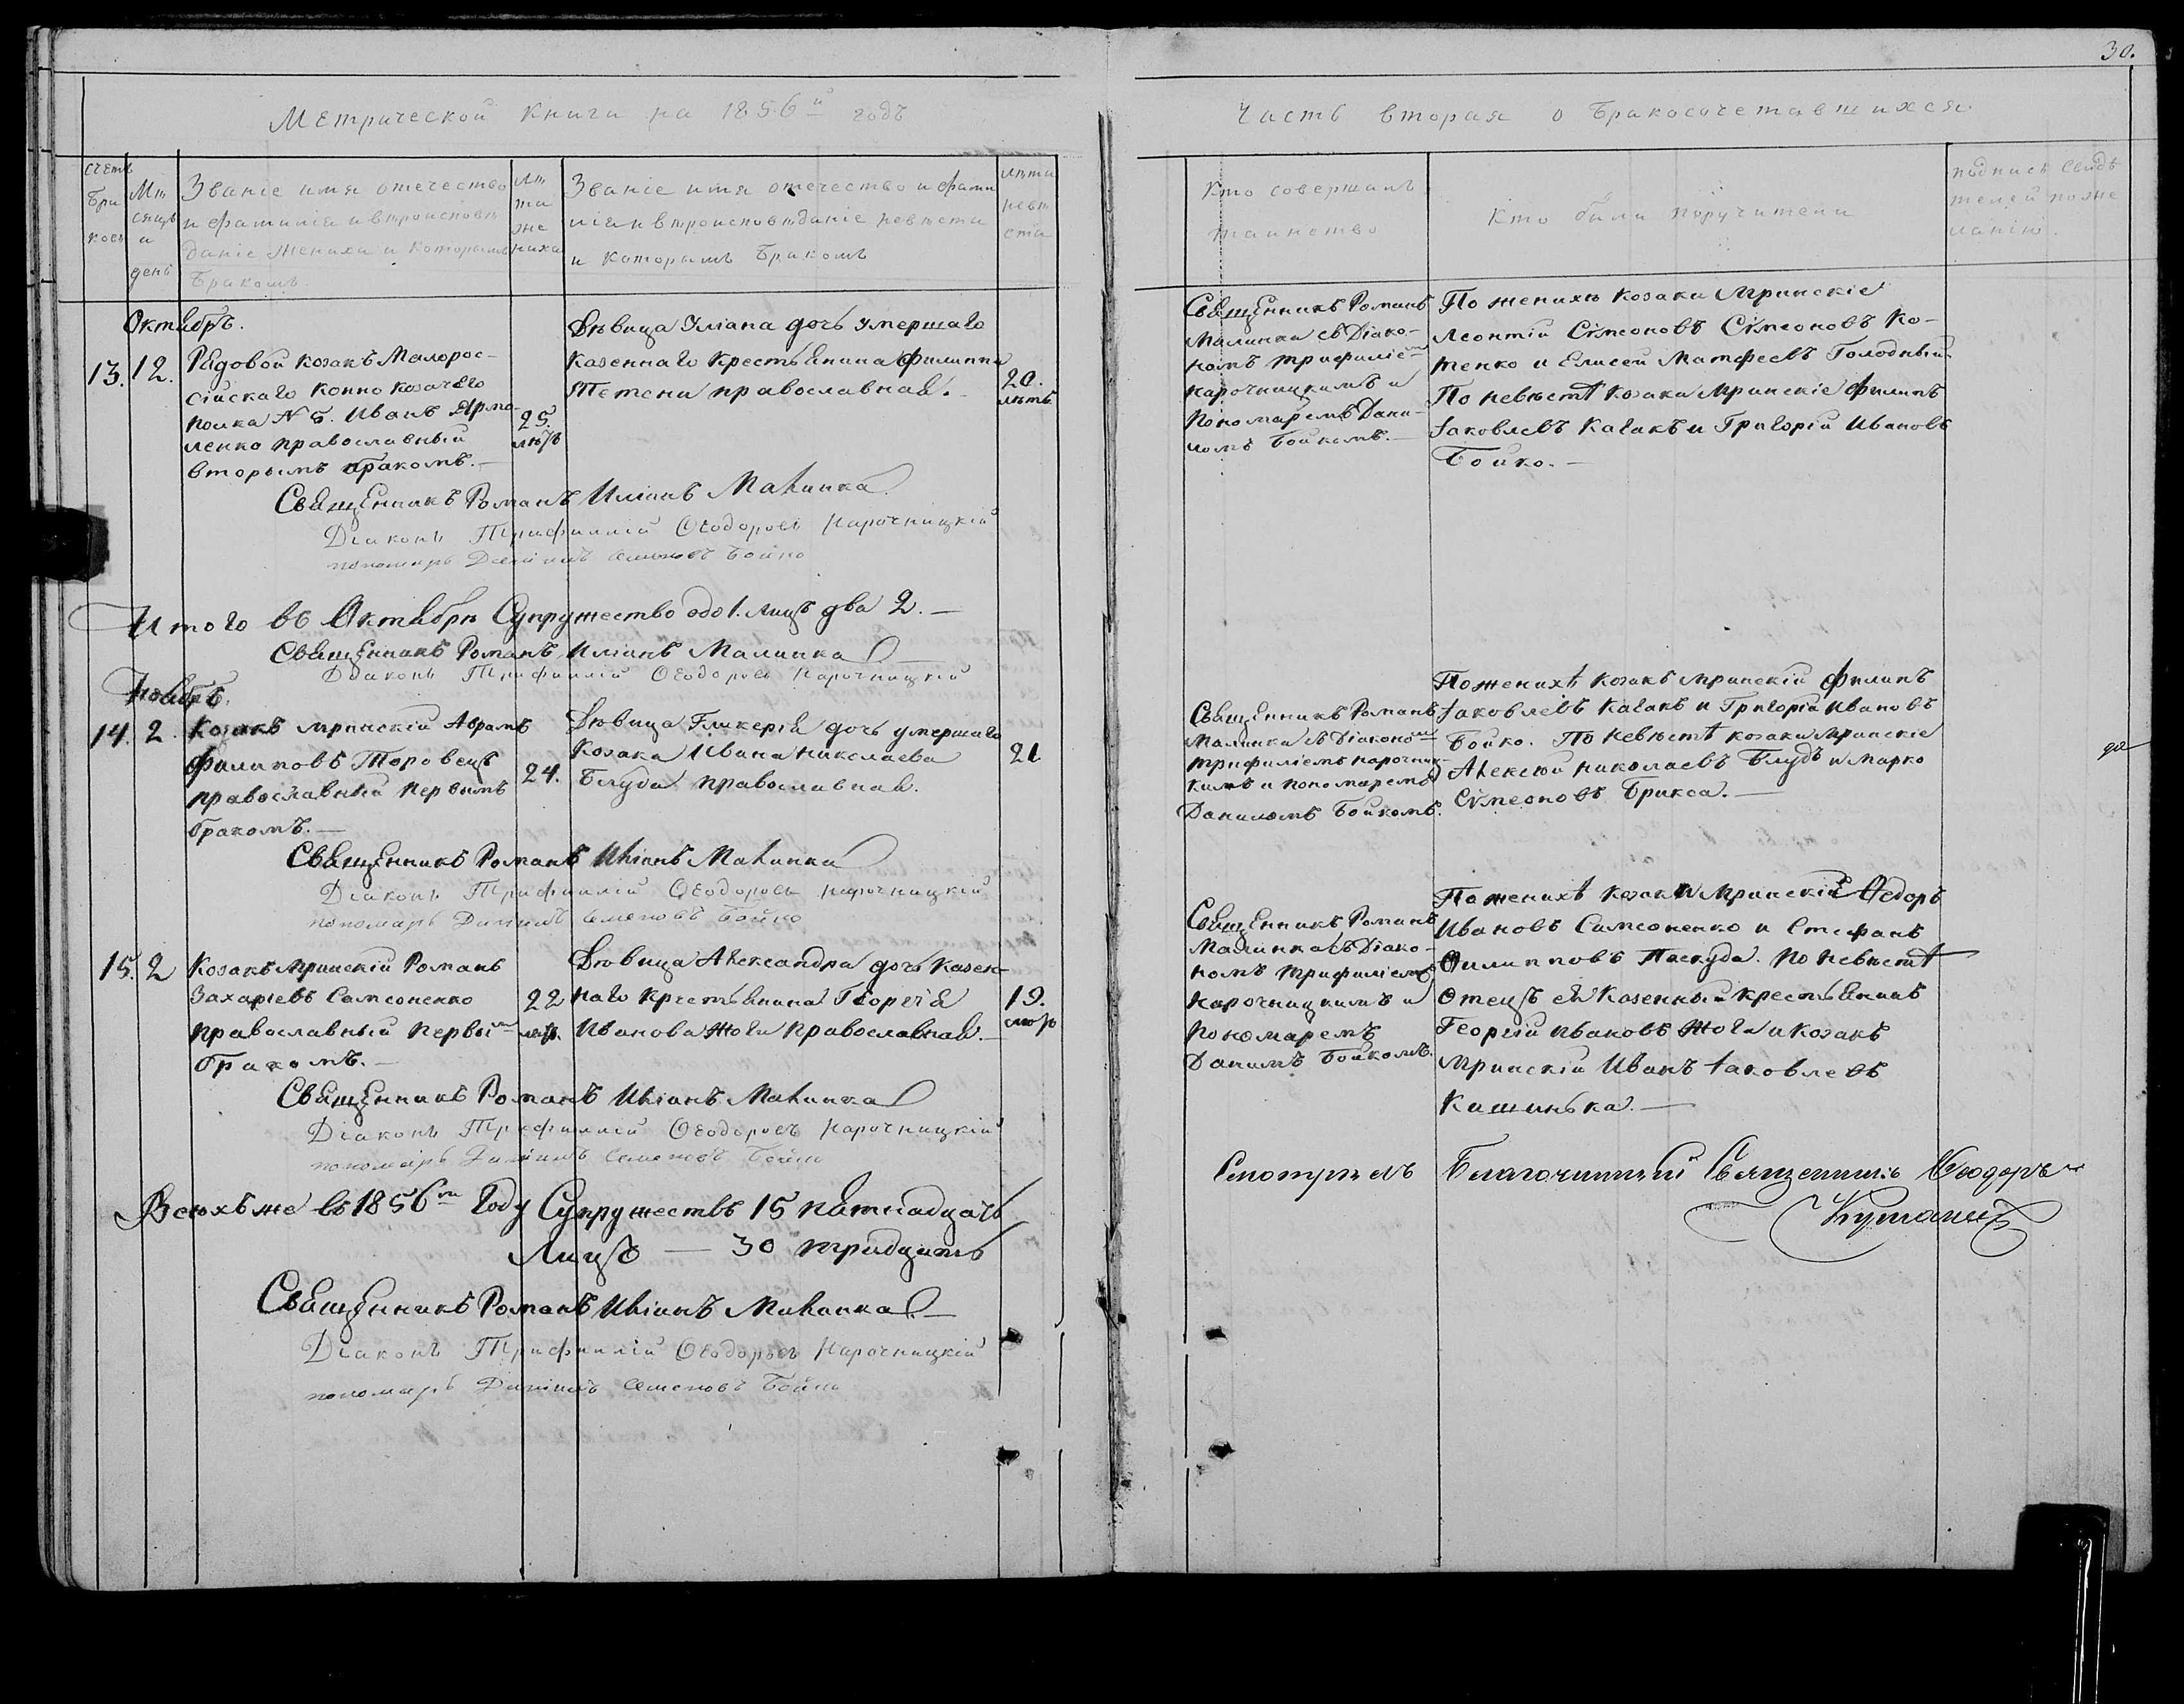 30.
Метрической книги на 1856й годъ
Часть вторая о бракосочетавшихся.
счетъ
бра
ковъ
Мѣ
сяцъ
и
день
Званіе имя отечество
и фамилія и вѣроисповѣ
даніе жениха и которымъ
бракомъ.
Лѣ
та
же
ниха
Званіе имя отечество и фами
лія и вѣроисповѣданіе невѣсты
и которымъ бракомъ
лѣта
невѣ
сты
Кто совершалъ
таинство
Кто были поручители
подпись свидѣ
телей по же
ланію.
Октябрь.
13.
12.
Рядовой козакъ Малорос-
сійскаго конно козачего
полка № 5. Иванъ Ярмо-
ленко православный
вторымъ бракомъ.
25.
лѣтъ
Дѣвица Уліана дочь умершаго
казеннаго крестьянина Филиппа
Тетени православная.
20.
лѣтъ
Священникъ Романъ
Малинка съ Діако-
номъ Трифиліемъ
Нарочницкимъ и
Пономаремъ Дани-
ломъ Бойкомъ.
По женихѣ козаки Мринскіе
Леонтій Сѵмеоновъ Сѵмеоновъ Ко-
тенко и Елисей Матфеевъ Голодный
По невѣстѣ козаки Мринскіе Филипъ
Іаковлевъ Кагакъ и Григорій Ивановъ
Бойко.
Священникъ Романъ Иліинъ Малинка
Діаконъ Трифиллій Ѳеодоровъ Нарочницкій
пономарь Даніилъ Семеновъ Бойко
Итого въ Октябрѣ Супружество одо 1. лицъ два 2.
Священникъ Романъ Иліинъ Малинка
Діаконъ Трифиллій Ѳеодоровъ Нарочницкій
Ноябрь.
14.
2.
Козакъ мринскій Аврамъ
Филиповъ Торовецъ
православный первымъ
бракомъ.
24.
Дѣвица Гликерія дочь умершаго
Козака Ивана Николаева
Блуда православная.
21
Священникъ Романъ
Малинка съ Діакономъ
Трифиліемъ Нарочниц-
кимъ и пономаремъ
Даниломъ Бойкомъ.
По женихѣ козакъ мринскій Филипъ
Іаковлевъ Кагакъ и Григорій Ивановъ
Бойко. По невѣстѣ козаки Мринскіе
Алексій Николаевъ Блудъ и Марко
Сѵмеоновъ Брикса.
Священникъ Романъ Иліинъ Малинка
Діаконъ Трифиллій Ѳеодоровъ Нарочницкій
пономарь Даниилъ Семеновъ Бойко
15.
2
Козакъ мринскій Романъ
Захаріевъ Самсоненко
православный первымъ
бракомъ.
22
лѣтъ.
Дѣвица Александра дочь казен-
наго крестьянина Георгія
Иванова Жоги православная.
19.
лѣтъ
Священникъ Романъ
Малинка съ Діако-
номъ Трифиліемъ
Нарочницкимъ и
Пономаремъ
Данилъ Бойкомъ.
По женихѣ козаки Мринскіе Ѳедоръ
Ивановъ Самсоненко и Стефанъ
Филипповъ Паскуда. По невѣстѣ
Отецъ ея Казенный крестьянинъ
Георгій Ивановъ Жога и козакъ
мринскій Иванъ Іаковлевъ
Кишинька.
Священникъ Романъ Иліинъ Малинка
Діаконъ Трифиллій Ѳеодоровъ Нарочницкій
пономарь Даниилъ Семеновъ Бойко
Всѣхъ же въ 1856мъ Году Супружествъ 15 пятнадцать
Лицъ — 30 тридцать
Смотрѣлъ Благочинный Священникъ Ѳеодоръ
Священникъ Романъ Иліинъ Малинка
Діаконъ Трифиллій Ѳеодоровъ Нарочницкій
пономарь Даниилъ Семеновъ Бойко